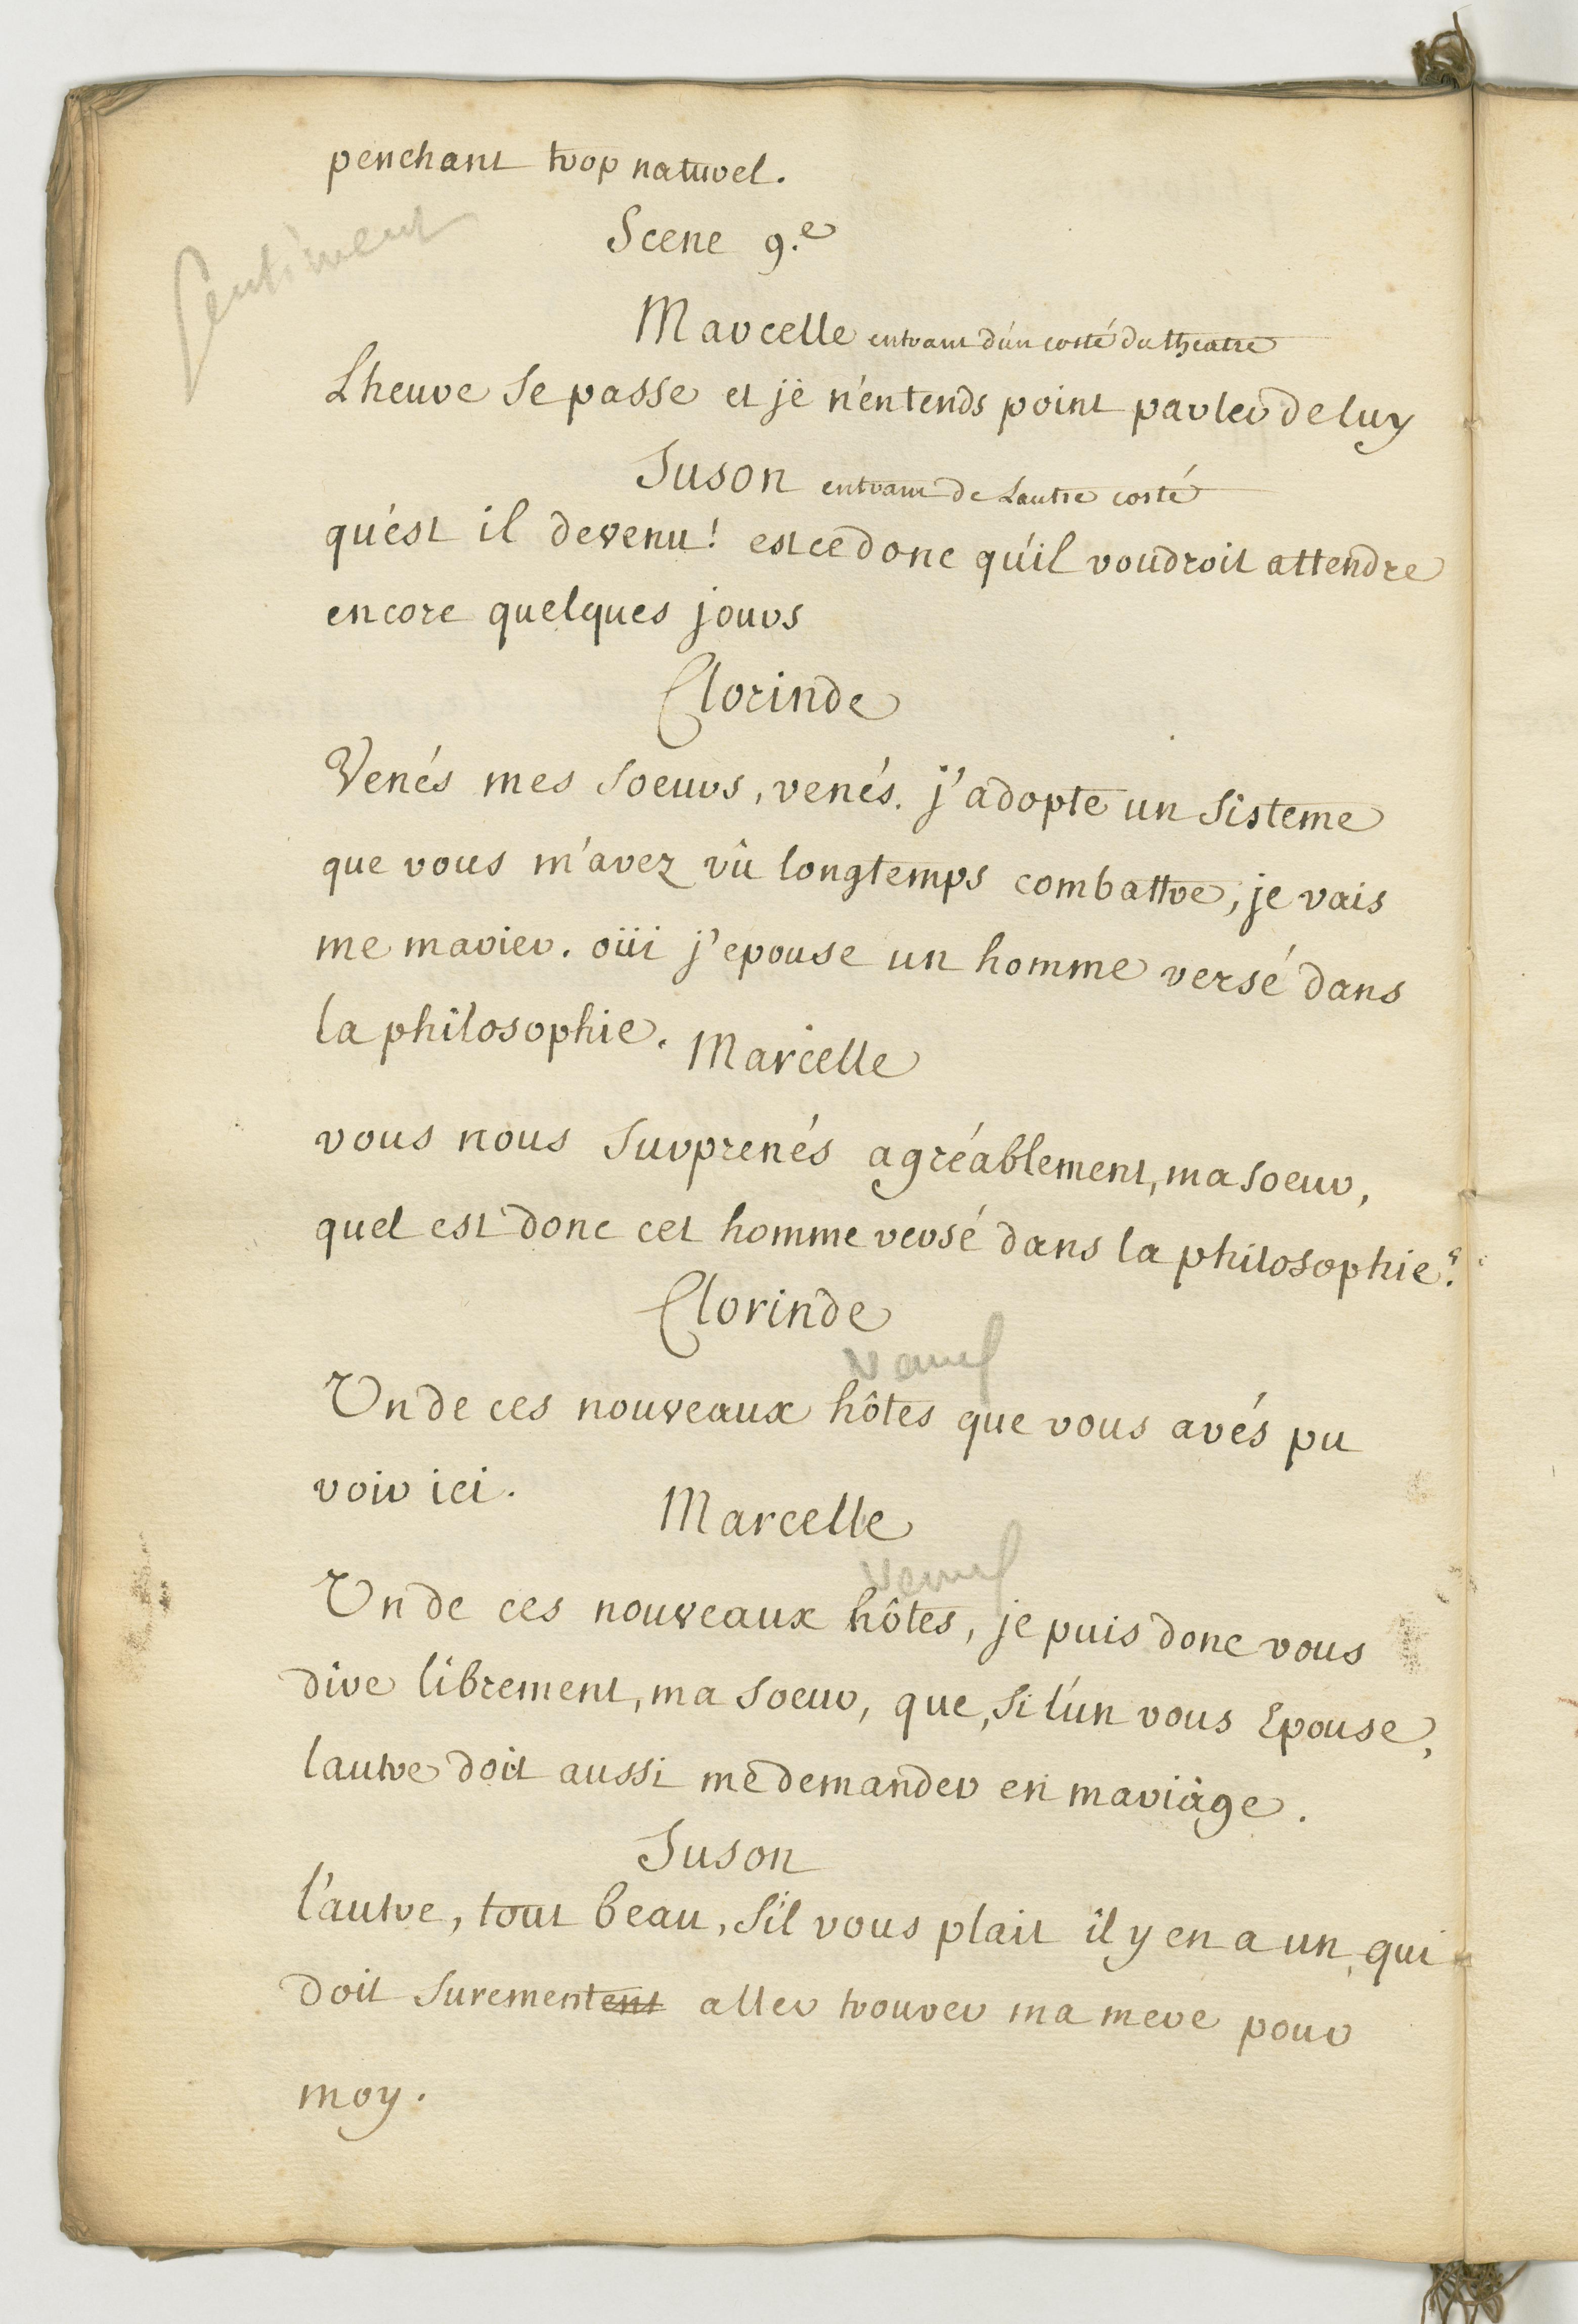 penchant trop naturel.
sentiment
Scene 9.e
Marcelle entrant d'un costé du theatre
Lheure se passe et je n'entends point parler de luy
Suson entrant de Lautre costé
qu'est il devenu! est ce donc qu'il voudroit attendre
encore quelques jours
Clorinde
Venés mes soeurs, venés. j'adopte un sisteme
que vous m'avez vû longtemps combattre, je vais
me marier. oüi j'epouse un homme versé dans
la philosophie.
Marcelle
vous nous surprenés agréablement, ma soeur,
quel est donc cet homme versé dans la philosophie?
Clorinde
Un de ces nouveaux hôtes que vous avés pu
voir ici.
Marcelle
Un de ces nouveaux hôtes, je puis donc vous
dire librement, ma soeur, que, si l'un vous Epouse,
lautre doit aussi me demander en mariage.
Suson
l'autre, tout beau, s'il vous plait il y en a un, qui
doit surementent aller trouver ma mere pour
moy.